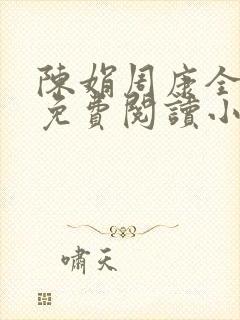 陳娟周康全
免費閱讀小
嘯天